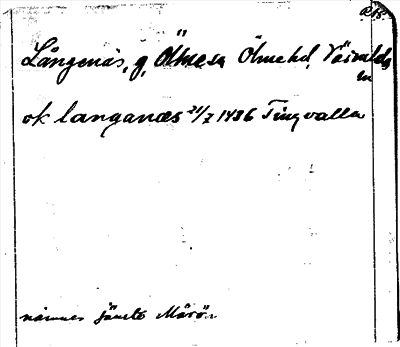 Långenäs, g, Ölmesa Ölme hd, Värmlds
ln
ok langanæs 21/7 1436 Tingvalla
nämnes jämte Mörön